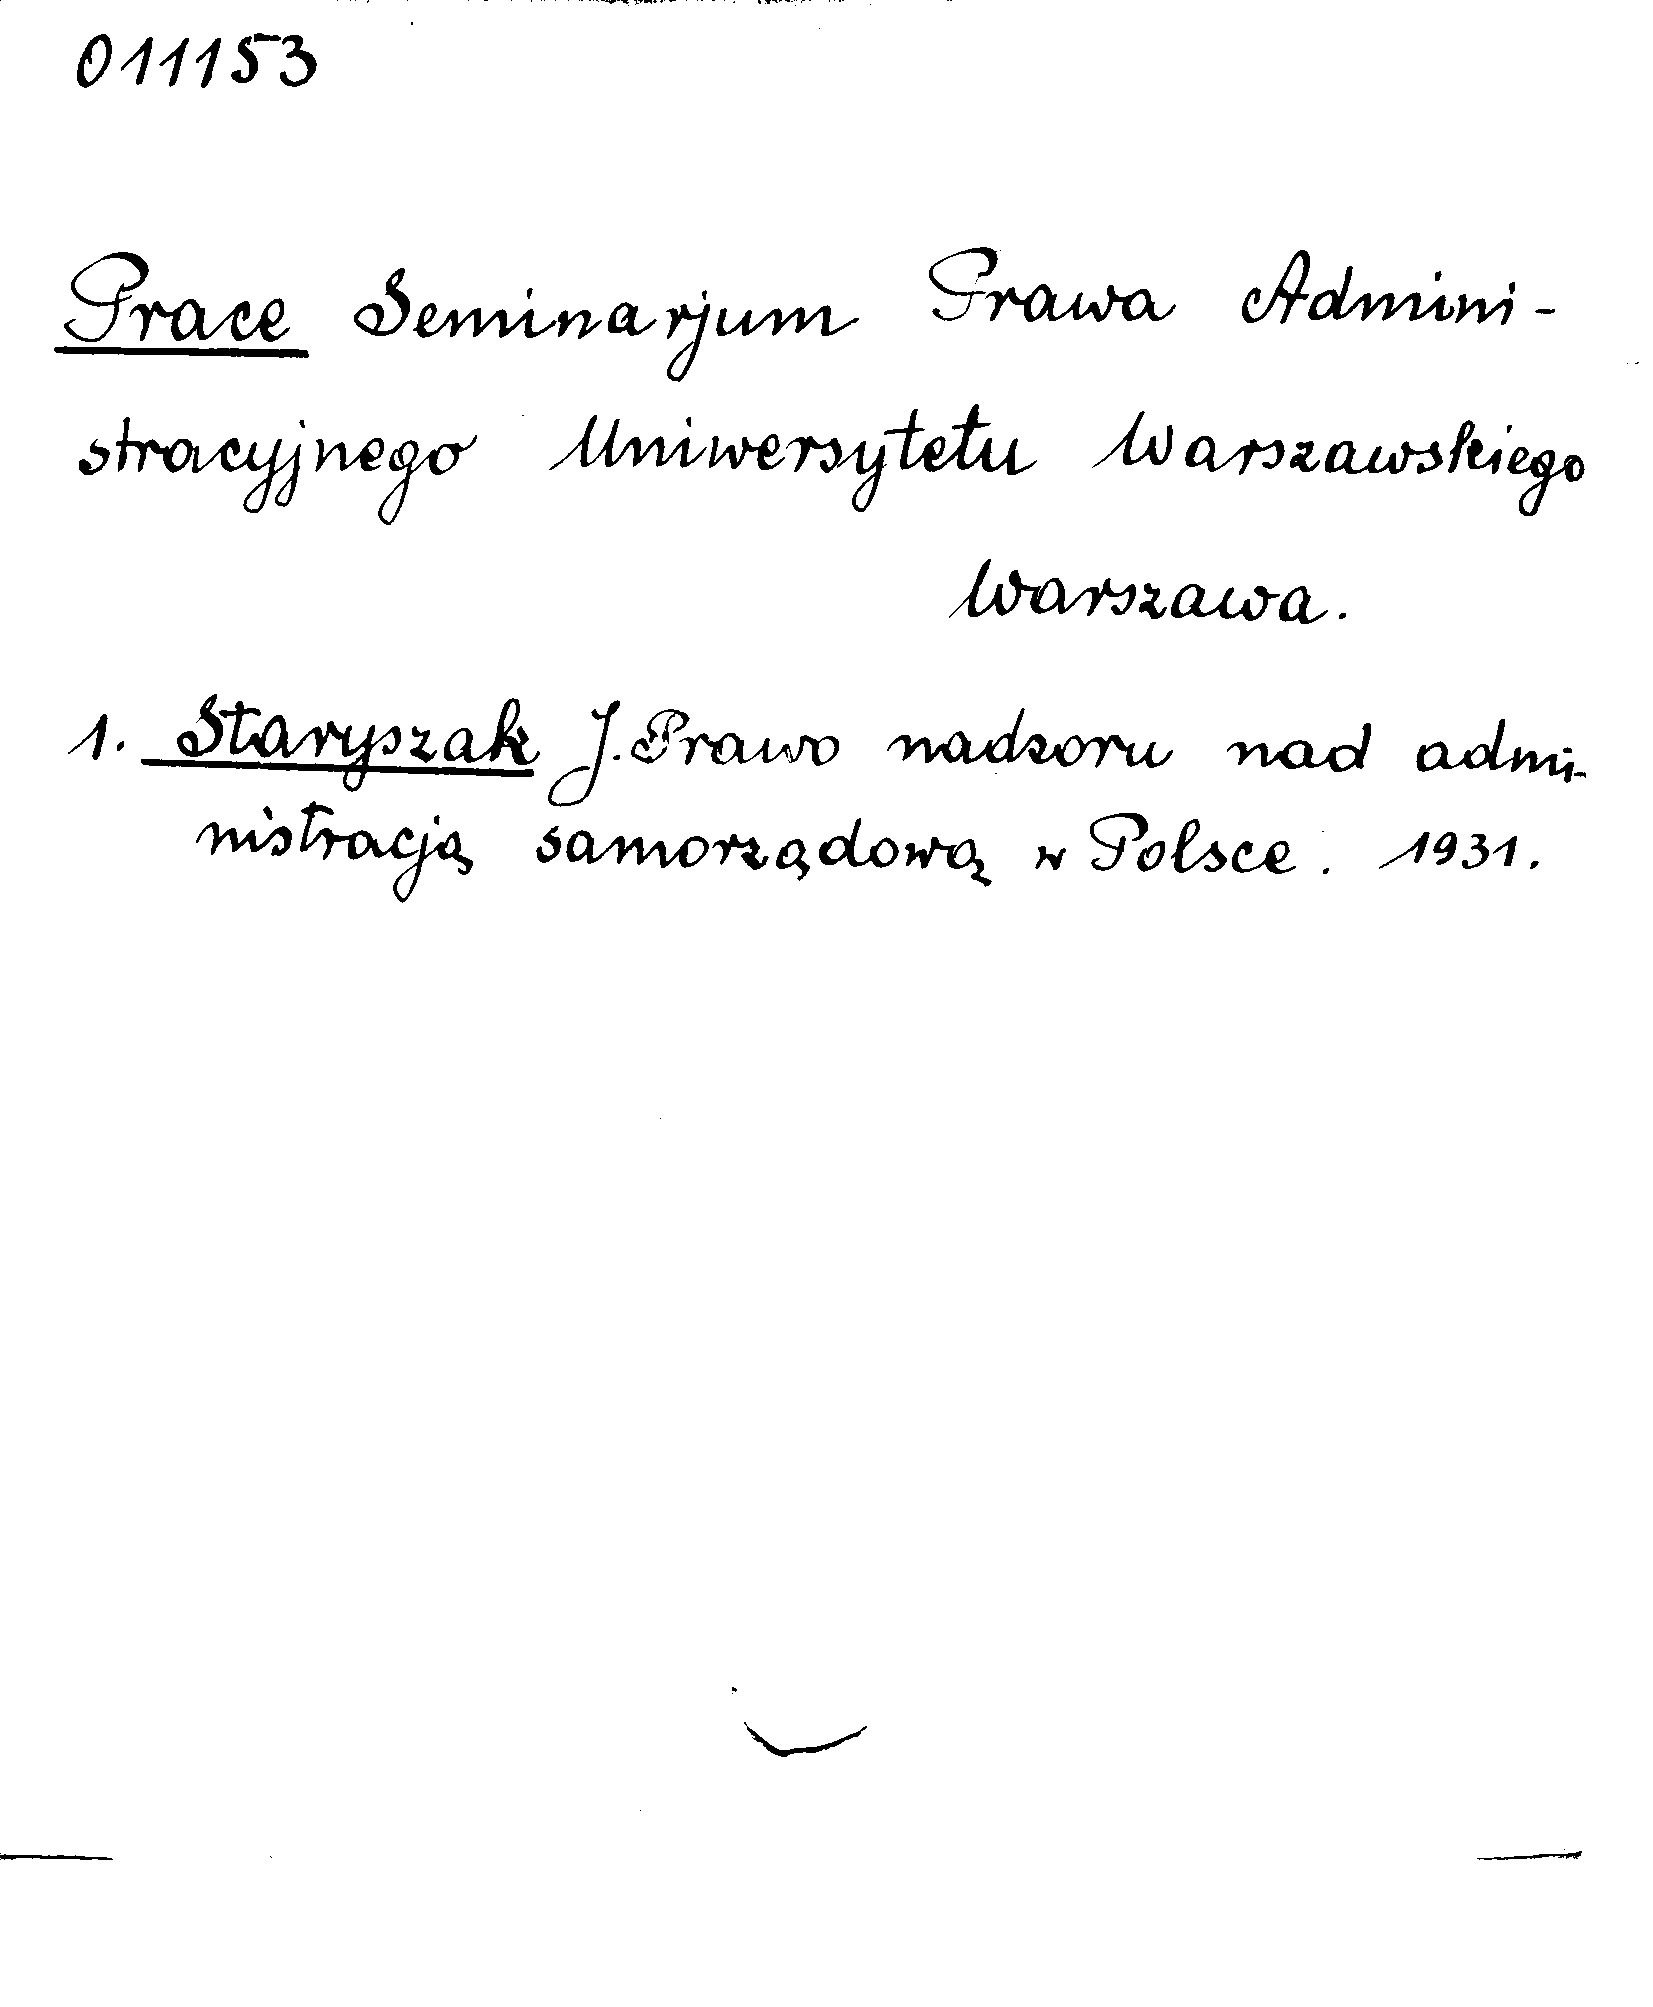 011153
Prace Seminarjum Prawa Admini-
stracyjnego Uniwersytetu Warszawskiego
Warszawa.
1. Staryszak J. Prawo nadzoru nad admi-
nistracją samorządową w Polsce. 1931.